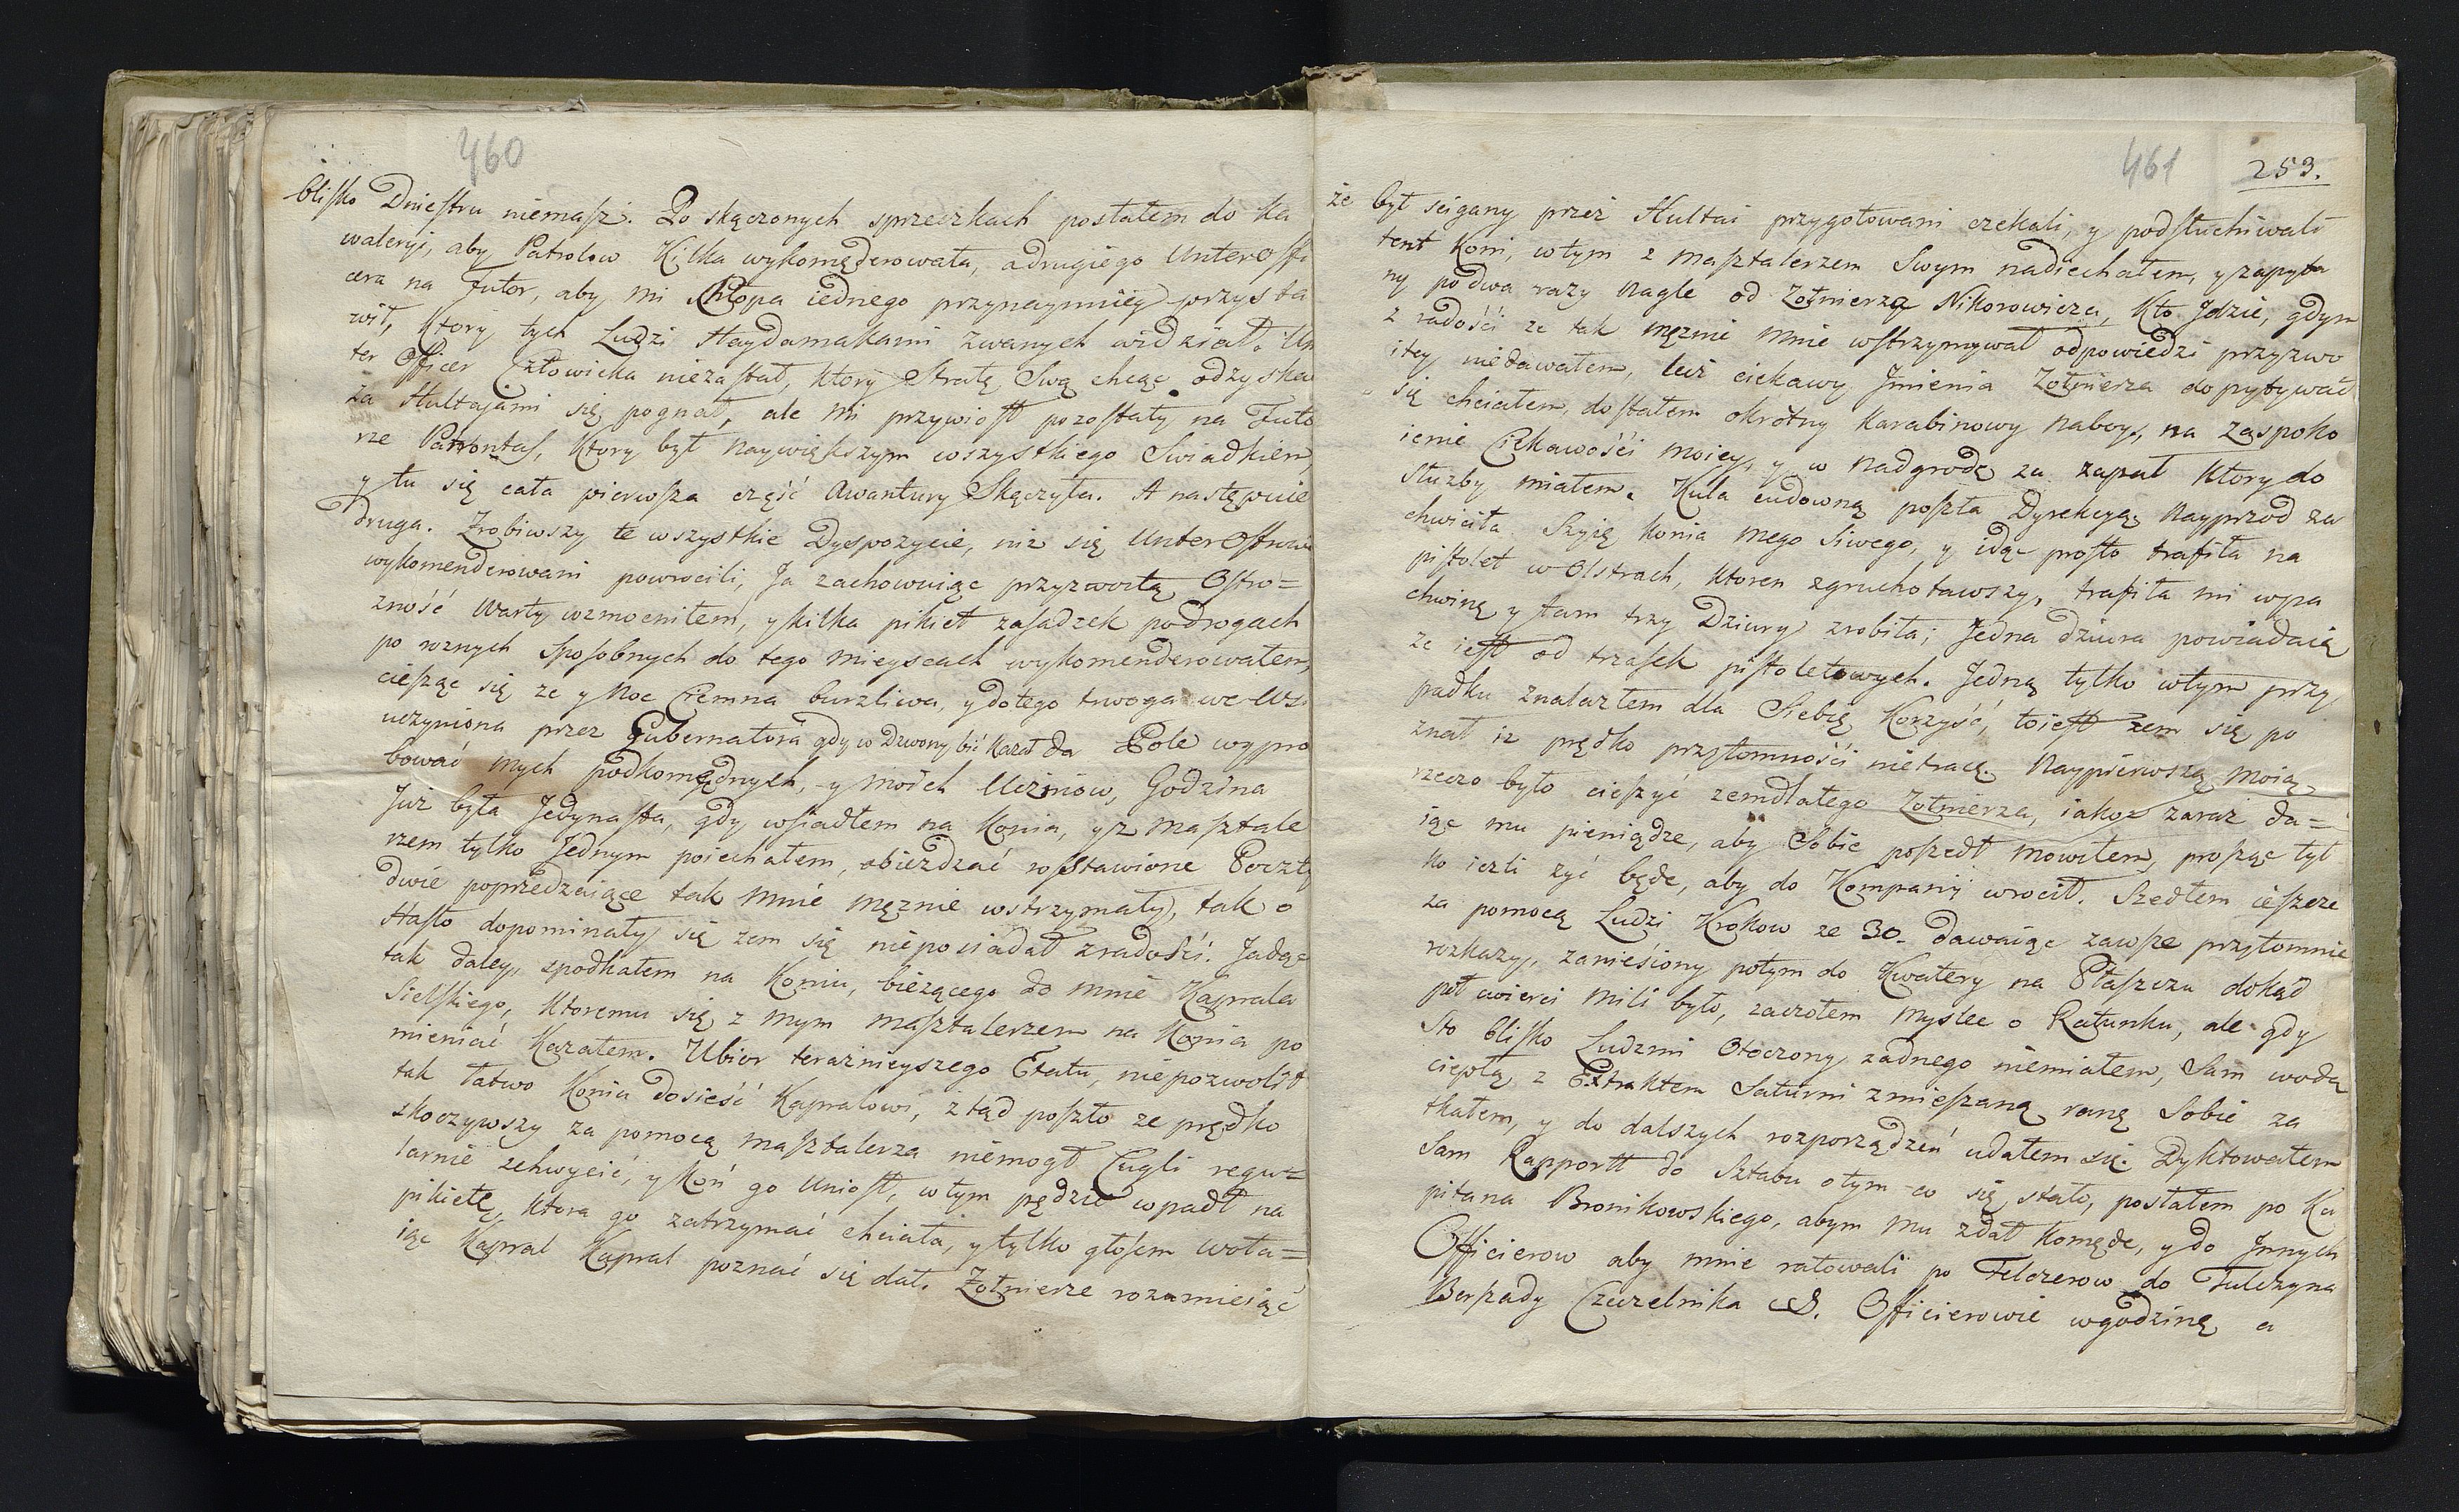 460
blisko Dniestru niemasz. Po skączonych sprzeczkach posłałem do Ka
waleryi, aby Patrolow Kilka wykomęderowała, adrugiego Unteroffi
cera na Futor, aby mi Chłopa iednego przynaymniey przysta
wił, Ktory tych Ludzi Haydamakami zwanych widział. Un
ter Officer Człowieka niezastał, Ktory Stratę Swą chcąc odzyskać
za Hultajami się pognał, ale mi przywiosł pozostały na Futo
rze Patrontas, Ktory był naywiększym wszystkiego Swiadkiem,
y tu się cała pierwsza część Awantury Skączyła. A następuie
druga. Zrobiwszy te wszystkie Dyspozycie, niz się Unterofficero
wykomenderowani powrocili, Ja zachowuiąc przyzwoitą Ostro=
zność Warty wzmocniłem, y kilka pikiet zasadzek podrogach
po roznych Sposobnych do tego mieyscach wykomenderowałem,
ciesząc się ze y Noc Ciemna burzliwa, y dotego trwoga we Wsi
uczyniona przez Gubernatora gdy w Dzwony bić Kazał da Pole wypro
bować mych podkomędnych, y moich Uczniow, Godzina
Już była Jedynasta, gdy wsiadłem na Konia, y z masztale
rzem tylko Jednym poiechałem, obiezdzać rosstawione Poczty
dwie poprzedzaiące tak mnie męznie wstrzymały, tak o
Hasło dopominały się zem się nieposiadał zradości. Jadąc
tak daley, spodkałem na Koniu, bieżącego do mnie Kaprala
Sielskiego, Ktoremu się z mym masztalerzem na Konia po
mieniać Kazałem. Ubior teraznieyszego Etatu, niepozwolił
tak łatwo Konia dosieść Kapralowi, ztąd poszło ze prędko
skoczywszy za pomocą masztalerza niemogł Cugli regu=
larnie zchwycić, y Koń go uniosł, wtym pędzie wpadł na
pikietę, Ktora go zatrzymać chciała, y tylko głosem woła=
iąc Kapral Kapral poznać się dał. Żołnierze rozumieiąć
461
253.
że był scigany przez Hultai przygotowani czekali, y podsłuchiwali
tent Koni, wtym z masztalerzem Swym nadiechałem, y zapyta
ny podwa razy nagle od Żołnierza Nikorowicza, Kto Jdzie, gdym
z radości ze tak męznie mnie wstrzymywał odpowiedzi przyzwo
itey niedawałem, lecz ciekawy Jmienia Żołnierza dopytywać
się chciałem, dostałem okrotny Karabinowy naboy, na zaspoko
ienie Ciekawości moiey, y w nadgrodę za zapał Ktory do
Służby miałem. Kula cudowną poszła Dyrekcyą, nayprzod za
chwiciła Szyię Konia mego Siwego, y idąc prosto trafiła na
pistolet w Olstrach, Ktoren zgruchotawszy, trafiła mi wpa
chwinę y tam trzy Dziury zrobiła; Jedna dziura powiadaią
ze iest od trzasek pistoletowych. Jedną tylko wtym przy
padku znalazłem dla Siebię Korzyść, toiest zem się po
znał iz prędko przytomności nietracę. Naypierwszą moią
rzeczo było cieszyć zemdlałego Żołnierza, iakoz zaraz da=
iąc mu pieniądze, aby Sobie poszedł mowiłem, prosząc tyl
ko iezli zyć będe, aby do Kompanij wrocił. Szedłem ieszcze
za pomocą Ludzi Krokow ze 30. dawaiąc zawsze przytomnie
rozkazy, zaniesiony potym do Kwatery na Płaszczu dokąd
puł cwierci mili było, zaczołem myslec o Ratunku, ale gdy
Sto blisko Ludzmi Otoczony zadnego niemiałem, Sam wodą
ciepłą z Extraktem Saturni zmieszaną ranę Sobie za
tkałem, y do dalszych rozporządzeń udałem się. Dyktowałem
Sam Rapportt do Sztabu otym co się stało, posłałem po Ka
pitana Bronikowskiego, abym mu zdał Komędę, y do Jnnych
Officierow aby mnie ratowali po Felczerow do Tulczyna
Berszady Czeczelnika &. Officierowie wgodzinę a